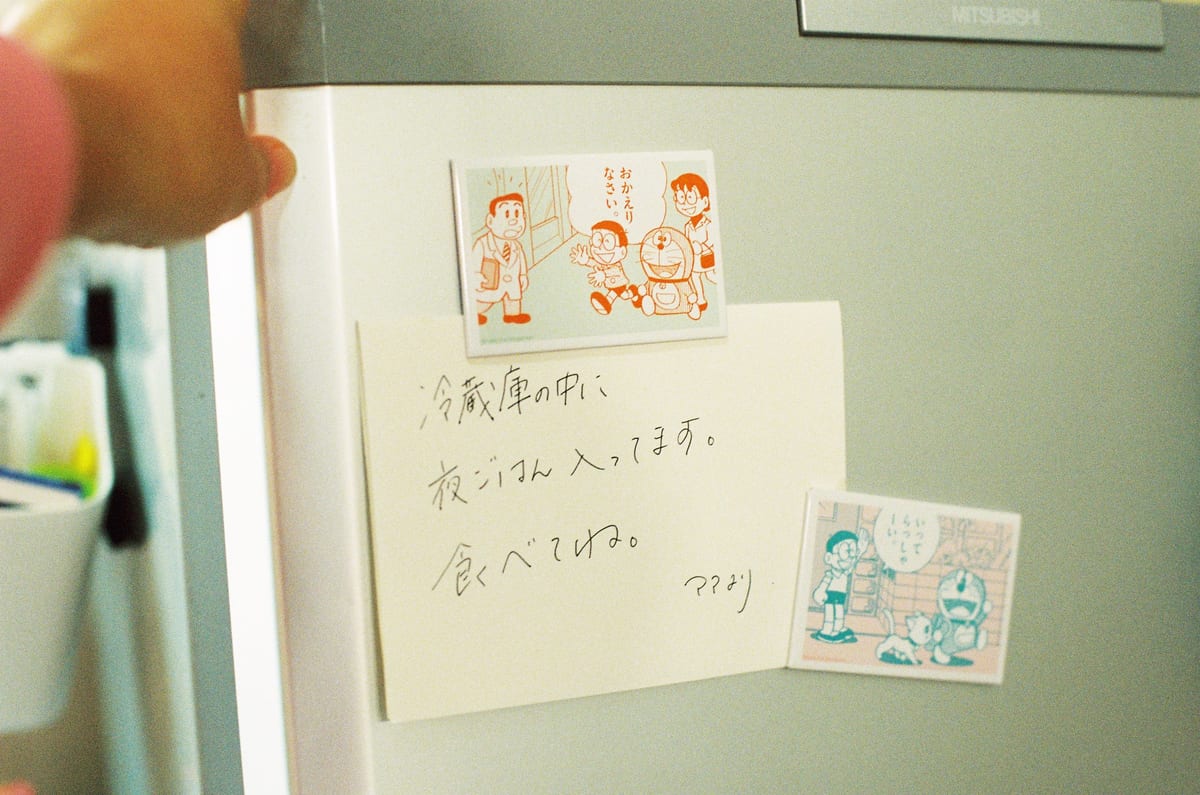 MITSUBISHI
おかえり
なさい。
冷蔵庫の中に
夜ごはん入ってます。
食べてね。
ママより
いって
らっしゃ
ーい。